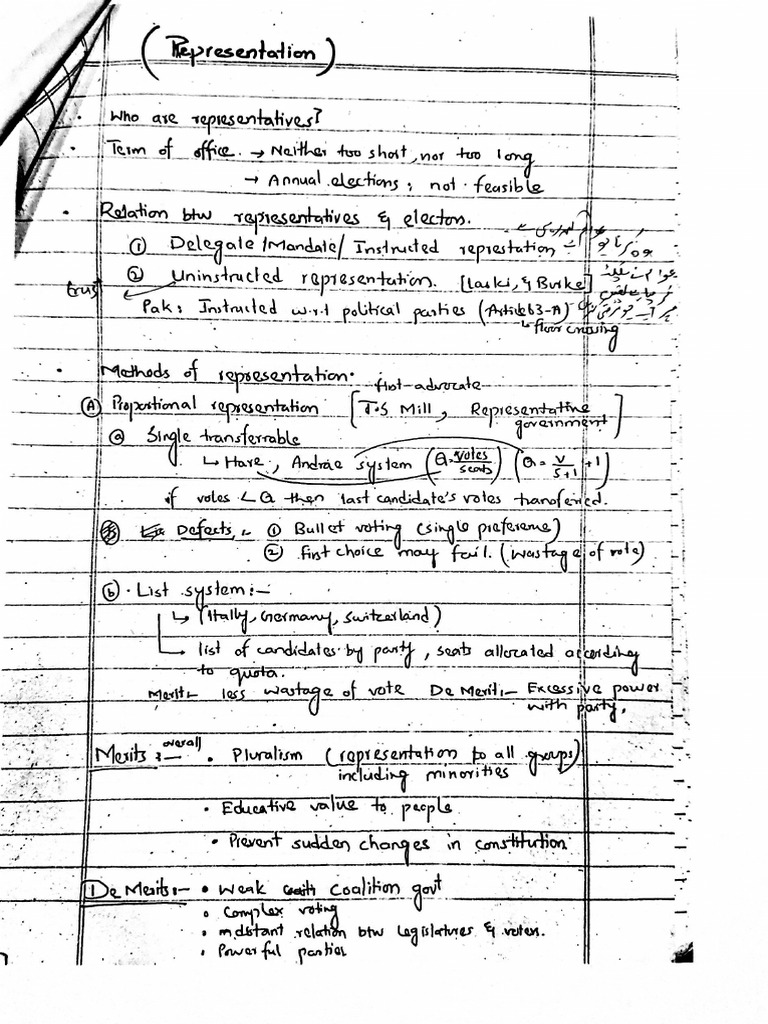 (Representation)
• Who are representatives?
• Term of office. → Neither too short, nor too long
→ Annual elections; not feasible
• Relation btw representatives & electors.
① Delegate/Mandate/Instructed represtation
② Uninstructed representation. [Laski, & Burke]
trust
Pak: Instructed w.r.t political parties (Article 63-A)
↳ floor crossing
• Methods of representation.
first advocate
Ⓐ Proportional representation [J.S Mill, Representative government]
ⓐ Single transferrable
↳ Hare, Andrae system (Q=votes/seats) (Q = V/S+1 +1)
if votes < Q then last candidate's votes transfered.
Defects:- ① Bullet voting (single preference)
② First choice may fail. (Wastage of vote)
ⓑ • List system:-
↳ (Itally, Germany, Switzerland)
↳ list of candidates by party, seats allocated according
to quota.
Merit:- less wastage of vote De Merit:- Excessive power
with party.
Merits:- overall • Pluralism (representation to all groups)
including minorities
• Educative value to people
• Prevent sudden changes in constitution
De Merits:- • Weak Coalition govt
• Complex voting
• relation btw legislatures & voters.
• Powerful parties